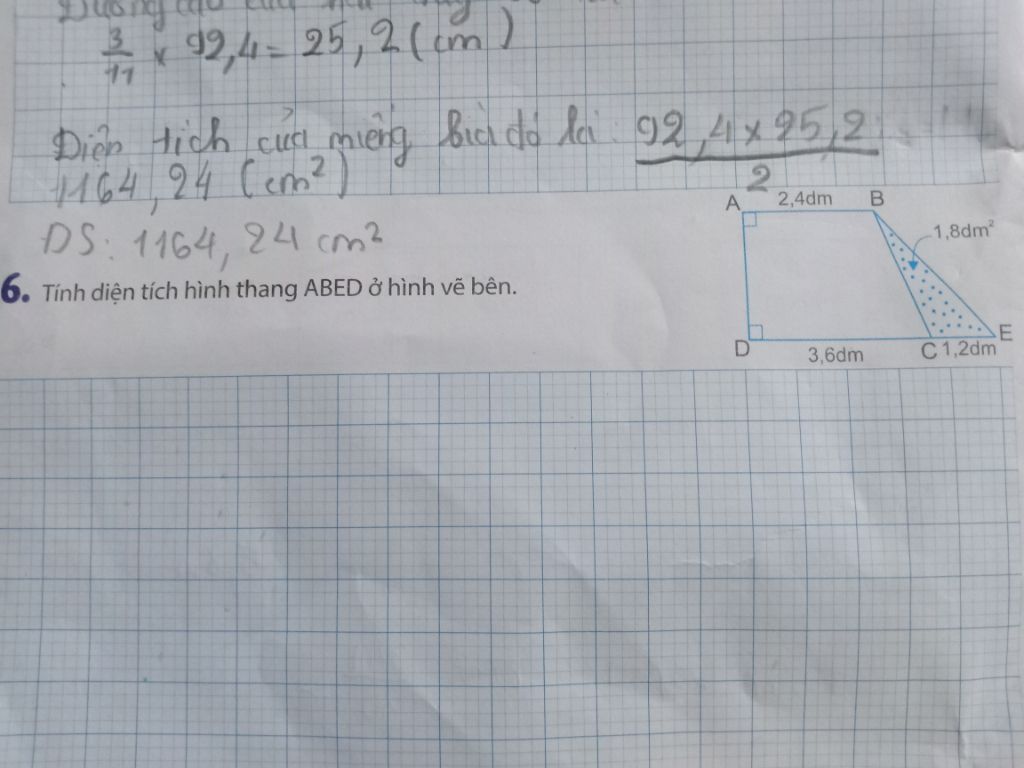 3/11 x 92,4 = 25,2 (cm)
Diện tích của miếng bìa đó là: 92,4 x 25,2 / 2
1164,24 (cm²)
ĐS: 1164,24 cm²
6. Tính diện tích hình thang ABED ở hình vẽ bên.
A 2,4dm B
1,8dm²
D 3,6dm C 1,2dm E